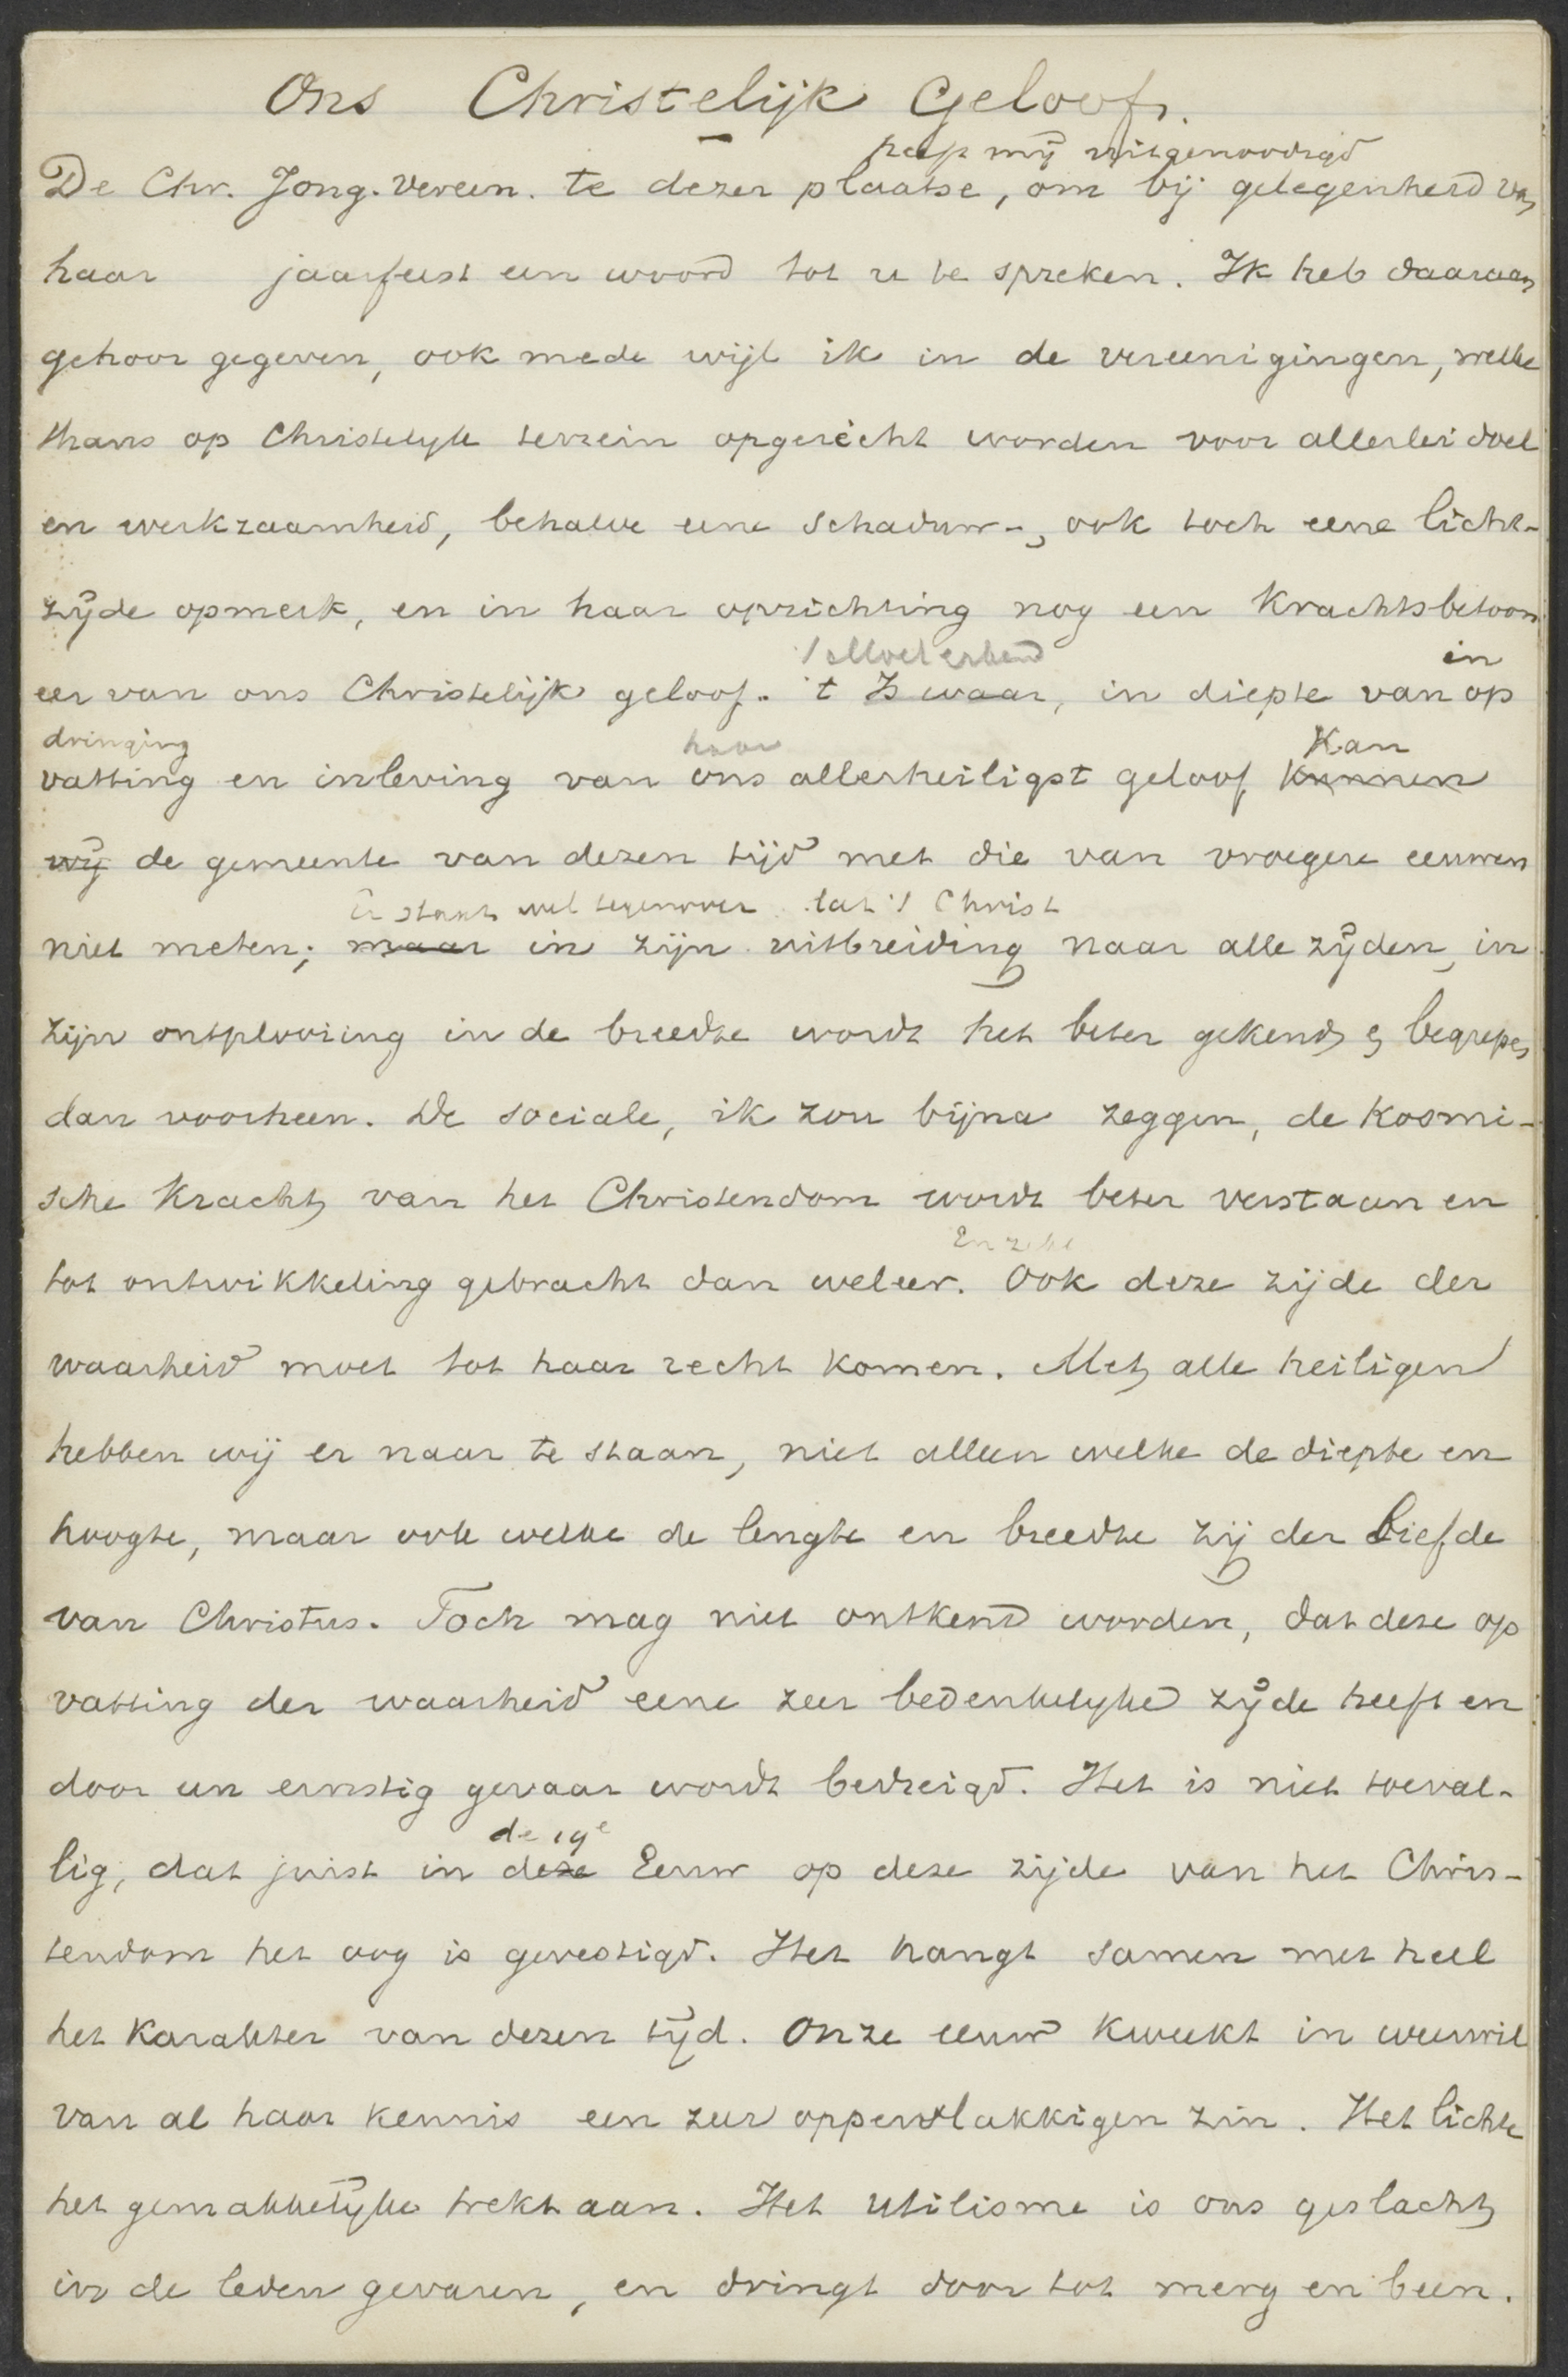 Ons Christelijk Geloof.
heeft mij uitgenoodigd
De Chr. Jong. Vereen. te dezer plaatse, om bij gelegenheid van
haar jaarfeest een woord tot u te spreken. Ik heb daaraan
gehoor gegeven, ook mede wijl ik in de vereenigingen, welke
thans op Christelijk terrein opgericht worden voor allerlei doel
en werkzaamheid, behalve eene schaduw-, ook toch eene licht-
zijde opmerk, en in haar oprichting nog een krachtsbetoon
in
eer van ons Christelijk geloof. 't Is waar, in diepte van op
dringing haar Kan
vatting en inleving van ons allerheiligst geloof kunnen
wij de gemeente van dezen tijd met die van vroegere eeuwen
Er staat wel tegenover dat 't Christ
niet meten; maar in zijn uitbreiding naar alle zijden, in
zijn ontplooiing in de breedte wordt het beter gekend en begrepen
dan voorheen. De sociale, ik zou bijna zeggen, de kosmi-
sche kracht van het Christendom wordt beter verstaan en
tot ontwikkeling gebracht dan weleer. Ook deze zijde der
waarheid moet tot haar recht komen. Met alle heiligen
hebben wij er naar te staan, niet alleen welke de diepte en
hoogte, maar ook welke de lengte en breedte zij der liefde
van Christus. Toch mag niet ontkend worden, dat deze op
vatting der waarheid eene zeer bedenkelijke zijde heeft en
door een ernstig gevaar wordt bedreigd. Het is niet toeval-
de 19e
lig, dat juist in deze Eeuw op deze zijde van het Chris-
tendom het oog is gevestigd. Het hangt samen met heel
het karakter van dezen tijd. Onze eeuw kweekt in weerwil
van al haar kennis een zeer oppervlakkigen zin. Het lichte
het gemakkelijke trekt aan. Het utilisme is ons geslacht
in de leden gevaren, en dringt door tot merg en been.